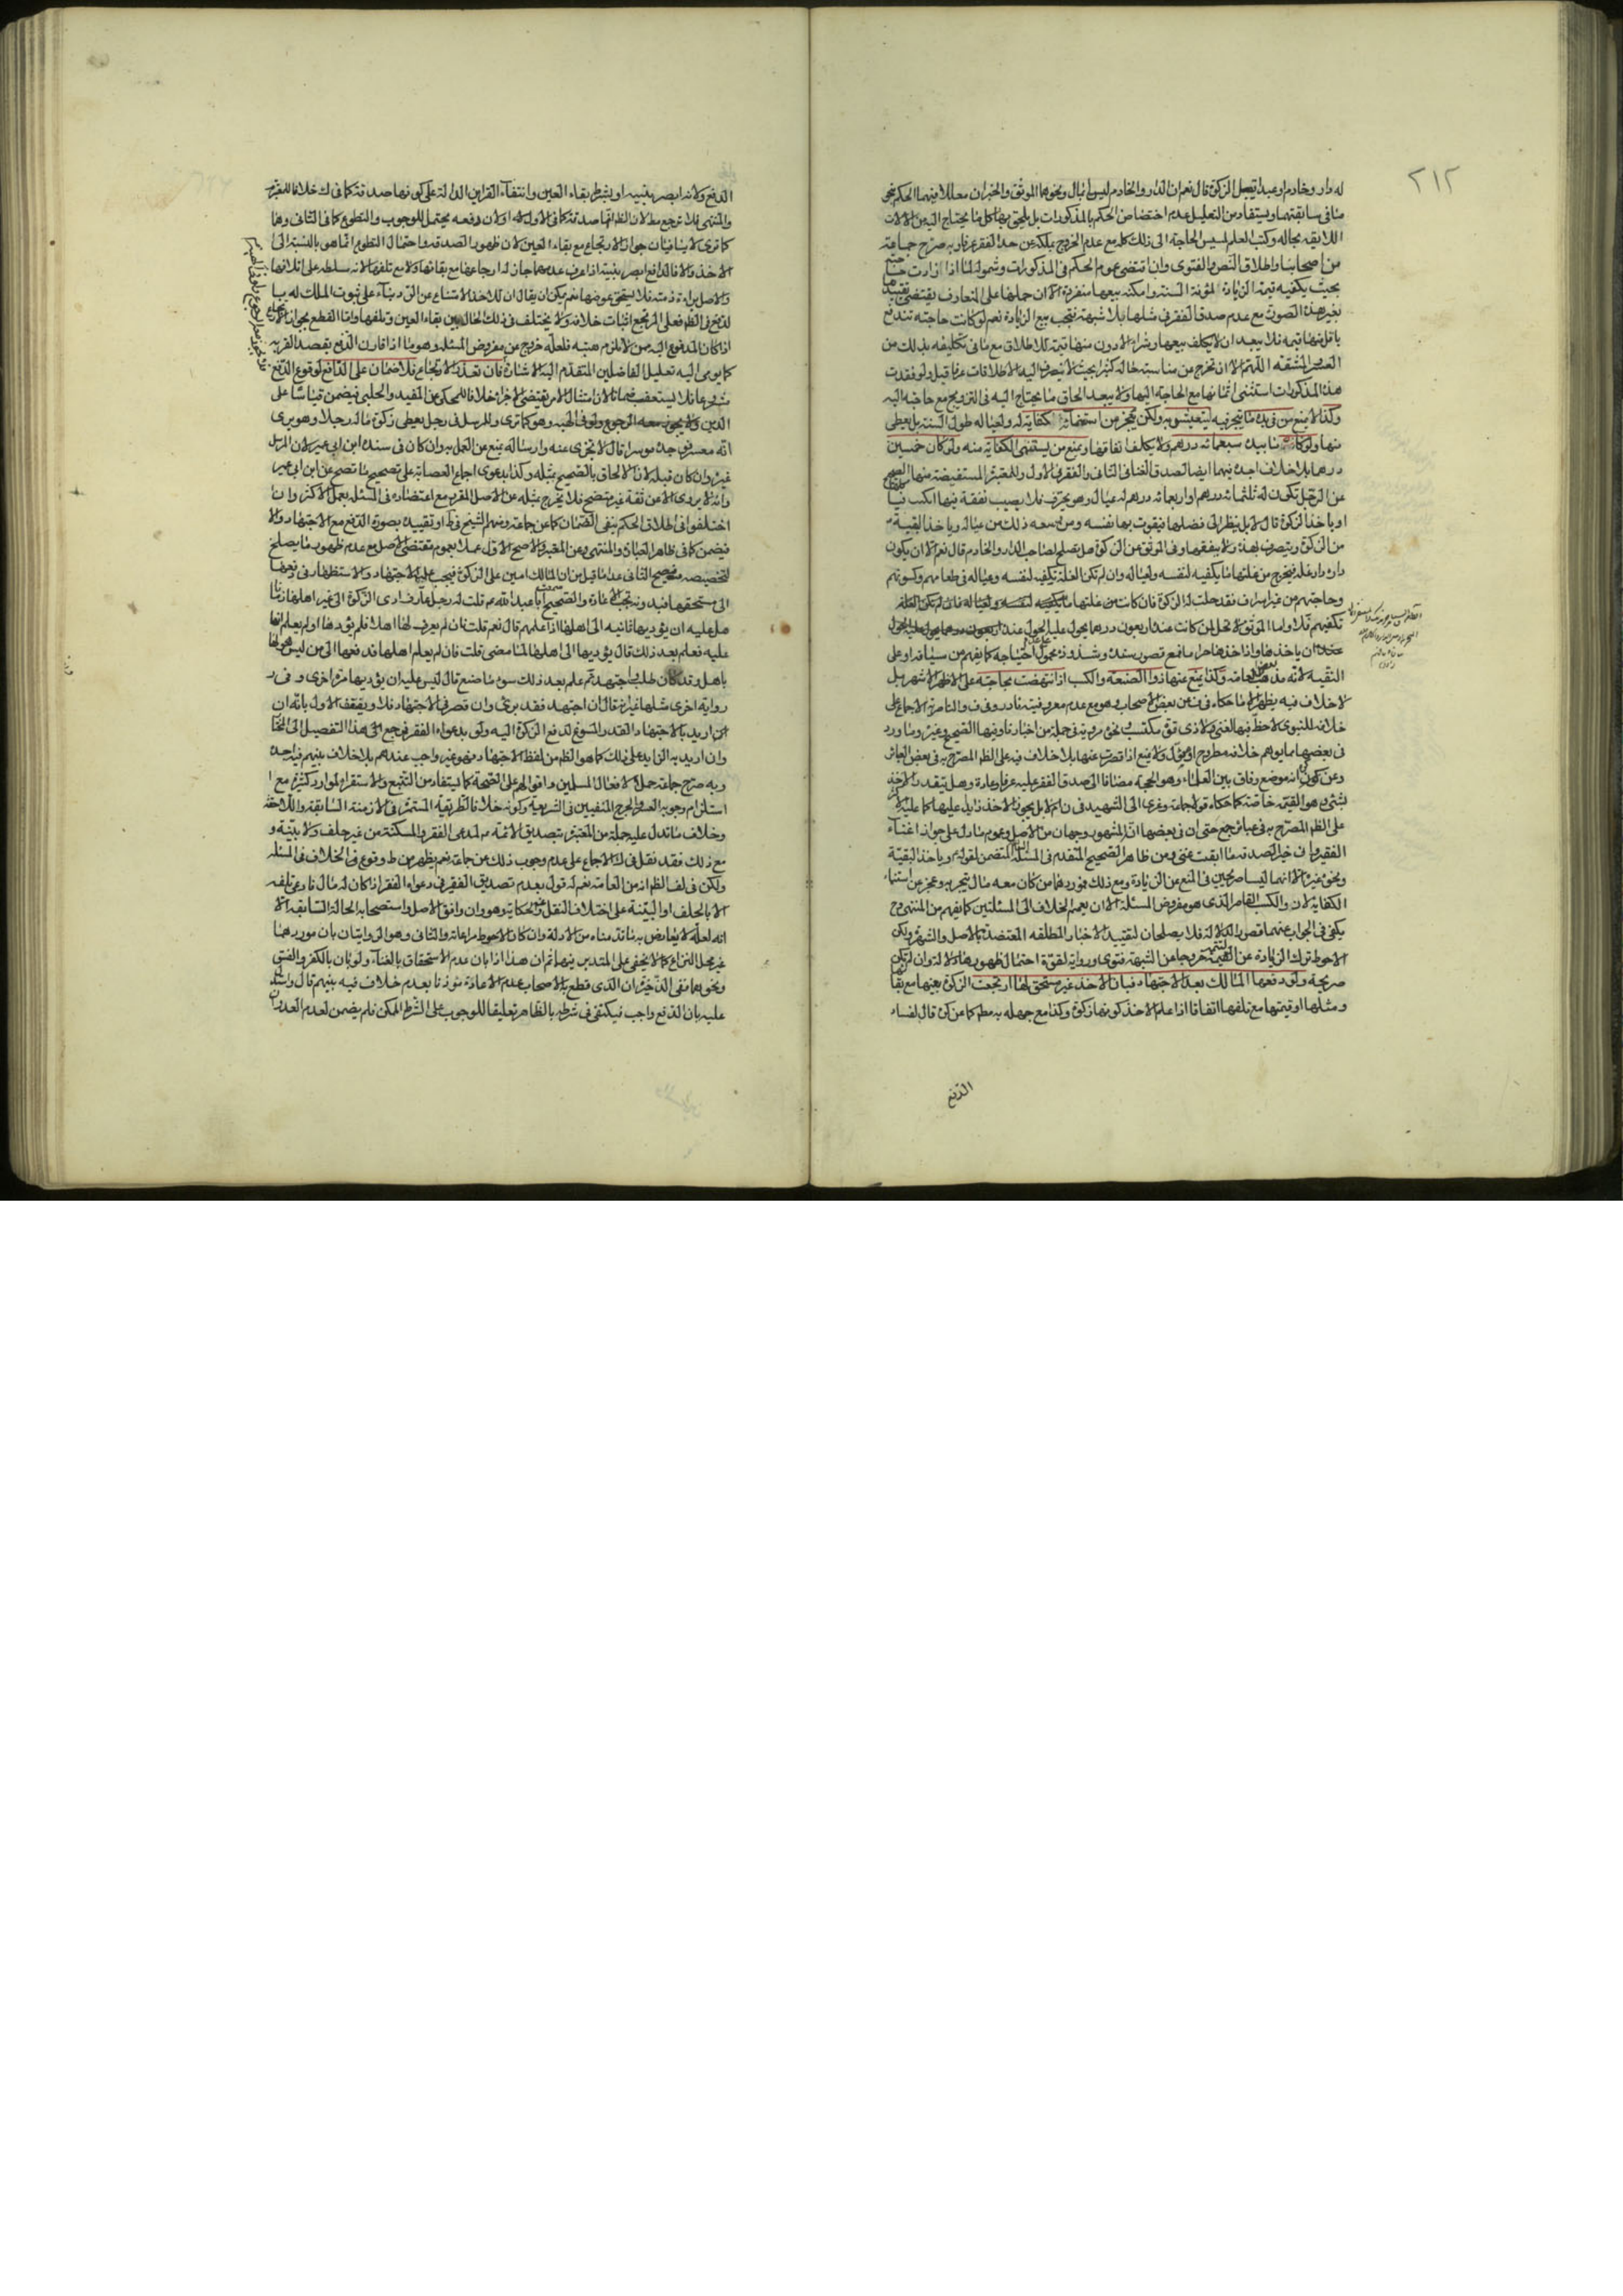 ٢١٢
له دار وخادم او عبد ايقبل الزكوة قال نعم ان الدار والخادم ليس بمال ونحوها الموثق والخبران معللا فيهما الحكم بنحو
ما في سابقتهما ويستفاد من التعليل عدم اختصاص الحكم بالمذكورات بل يلحق بها كل ما يحتاج اليه من الالات
اللايقة بحاله وكتب العلم لمسيس الحاجة الى ذلك كله مع عدم الخروج بملكه عن حد الفقر عرفا وبه صرح جماعة
من اصحابنا واطلاق النص والفتوى وان اقتضى عموم الحكم في المذكورات وشموله لما اذا زادت
بحيث يكفيه قيمة الزيادة لمؤنة السنة وامكنه بيعها منفردة الا ان حملها على المتعارف يقتضي تقييدها
بغير هذه الصورة مع عدم صدق الفقر في مثلها بلا شبهة فيجب بيع الزيادة نعم لو كانت حاجته تندفع
باقل منها قيمة فلا يبعد ان لا يكلف بيعها وشراء الادون منها قيمة للاطلاق مع ما في تكليفه بذلك من
العسر والمشقة اللهم الا ان تخرج عن مناسبة حاله كثيرا بحيث لا ينصرف اليه الاطلاقات عرفا قيل ولو فقدت
هذه المذكورات استثنى اثمانها مع الحاجة اليها ولا يبعد الحاق ما يحتاج اليه في التزويج مع حاجته اليه
وكذا لا يمنع من في يده ما يتجر فيه ليتعيش به ولكن يعجز عن استنماء الكفاية له ولعياله طول السنة بل يعطى
منها ولو كان ما بيده سبعمائة درهم ولا يكلف انفاقها ويمنع من يستنمي الكفاية منه ولو كان خمسين
درهما بلا خلاف اجده فيهما ايضا لصدق الغنا في الثاني والفقر في الاول وللمعتبرة المستفيضة منها الصحيح
عن الرجل تكون له ثلثمائة درهم او اربعمائة درهم وله عيال وهو يحترف فلا يصيب نفقته فيها ايكب فيأكلها
او ياخذ الزكوة قال لا بل ينظر الى فضلها فيقوت بها نفسه ومن وسعه ذلك من عياله وياخذ البقية
من الزكوة ويتصرف بهذه ولا ينفقها وفي الموثق عن الزكوة هل تصلح لصاحب الدار والخادم قال نعم الا ان يكون
داره دار غلة فيخرج من غلتها ما يكفيه لنفسه ولعياله وان لم تكن الغلة تكفيه لنفسه وعياله في طعامهم وكسوتهم
وحاجتهم من غير اسراف فقد حلت له الزكوة فان كانت من غلتها ما يكفيه لنفسه ولعياله فان لم تكن الغلة
تكفيهم فلا واما الموثق لا تحل لمن كانت عنده اربعون درهما يحول عليها الحول عنده اربعون درهما يحول عليها الحول
عنده ان ياخذها وان اخذها اخذها حراما فمع قصور سنده وشذوذه محمول على عدم احتياجه كما يفهم من سياقه او على
التقية لانه مذهب بعض العامة وكذا يمنع عنها ذوا الصنعة والكسب اذا نهضت بحاجته على الاظهر الاشهر بل
لا خلاف فيه يظهر الا ما حكاه في ف عن بعض الاصحاب وهو مع عدم معروفيته نادر وفي ف والناصرية الاجماع على
خلافه للنبوي لاحظ فيها لغني ولا ذي قوة مكتسب ونحوه مروية في جملة من اخبارنا وفيها الصحيح وغيره وما ورد
في بعضها مما يوهم خلافه مطروح او مؤول ولا يمنع اذا قصرت عنها بلا خلاف فيه على الظ المصرح به في بعض العبائر
وعن كرة انه موضع وفاق بين العلماء وهو الحجة مضافا الى صدق الفقر عليه عرفا وعادة وهل يتقدر الاخذ
بشيء هو التتمة خاصة كما حكاه قولا جماعة وعزي الى الشهيد في ن ام لا بل يجوز الاخذ زايدا عليها كما عليه الاكثر
على الظ المصرح به في عبائر جمع حتى ان في بعضها انه المشهور وجهان من الاصل وعموم ما دل على جواز اغناء
الفقير وان خير الصدقة ما ابقت غنى ومن ظاهر الصحيح المتقدم في المسئلة السابقة المتضمن لقوله وياخذ البقية
ونحوه غيره الا انهما ليسا صريحين في المنع عن الزيادة ومع ذلك موردهما من كان معه مال يتجر به وعجز عن استنماء
الكفاية لا ذو الكسب القاصر الذي هو مفروض المسئلة الا ان يعمم الخلاف الى المسئلتين كما يفهم من المنتهى وح
يكفي في الجواب عنهما قصور الدلالة فلا يصلحان لتقييد الاخبار المطلقة المعتضدة بالاصل والشهرة ولكن
الاحوط ترك الزيادة عن التتمة خروجا عن الشبهة فتوى ورواية لقوة احتمال ظهورها دلالة وان لم تكن
صريحة ولو دفعها المالك بعد الاجتهاد فبان الاخذ غير مستحق لها ارتجعت الزكوة بعينها مع بقائها
ومثلها او قيمتها مع تلفها اتفاقا اذا علم الاخذ كونها زكوة وكذا مع جهله به مطلقا كما عن كرة قال لفساد
الدفع
الدفع ولانه ابصر بنيته او بشرط بقاء العين وانتفاء القراين الدالة على كونها صدقة كما في ك خلافا للمعتبر
والمنتهى فلا ترجع مطلقا لان الظ انها صدقة كما في الاول او لان دفعه يحتمل للوجوب والتطوع كما في الثاني وهما
كما ترى لا ينافيان جواز الارتجاع مع بقاء العين لان ظهور الصدقة واحتمال التطوع انما هو بالنسبة الى
الاخذ والا فالدافع ابصر بنيته اذا عرف عدمهما جاز له ارجاعها مع بقائها ولا مع تلفها لانه سلطه على اتلافها
والاصل براءة ذمته فلا يستحق عوضها نعم يمكن ان يقال ان للاخذ الامتناع عن الرد بناء على ثبوت الملك له بها
لدفع في الظ فعلى المرتجع اثبات خلافه ولا يختلف في ذلك الحال بين بقاء العين وتلفها واما القطع بجواز الارتجاع
اذا كان المدفوع اليه من لا يلزم هبته فلعله خروج عن مفروض المسئلة وهو ما اذا قارن الدفع بقصد القربة
كما يومي اليه تعليل الفاضلين المتقدم اليه الاشارة فان تعذر الارتجاع فلا ضمان على الدافع لوقوع الدفع
مشروعا فلا يستعقب ضمانا لان امتثال الامر يقتضي الاجزاء خلافا للمحكي عن المفيد والحلبي فيضمن قياسا على
الدين ولا يجوز معه الرجوع ولو في الهبة وهو كما ترى وللمرسل في رجل يعطي زكوة ماله رجلا وهو يرى
انه معسر فوجده موسرا قال لا يجزي عنه وارساله يمنع عن العمل به وان كان في سنده ابن ابي عمير لان المرسل
غيره وان كان قبله لان الالحاق بالصحيح بمثله وكذا بدعوى اجماع العصابة على تصحيح ما تصح عن ابن ابي عمير
وانه لا يروي الا عن ثقة غير متضح فلا يخرج بمثله عن الاصل المقرر مع اعتضاده في المسئلة بعمل الاكثر وان
اختلفوا في اطلاق الحكم بنفي الضمان كما عن جماعة ومنهم الشيخ في ط او تقييده بصورة الدفع مع الاجتهاد والا
فيضمن كما في ظاهر العبارة والمنتهى وعن المعتبر والاصح الاول عملا بعموم مقتضى الاصل مع عدم ظهور ما يصلح
لتخصيصه وتصحيح الثاني عدا ما قيل من ان المالك امين على الزكوة فيجب عليه الاجتهاد والاستظهار في دفعها
الى مستحقها فبدونه تجب الاعادة والصحيح ابا عبد الله ع قلت له رجل عارف ادى الزكوة الى غير اهلها زمانا
هل عليه ان يؤديها ثانية الى اهلها اذا علمهم قال نعم قلت فان لم يعرف لها اهلا فلم يؤدها او لم يعلم انها
عليه فعلم بعد ذلك قال يؤديها الى اهلها لما مضى قلت فان لم يعلم اهلها فدفعها الى من ليس هو لها
باهل وقد كان طلب واجتهد ثم علم بعد ذلك سوء ما صنع قال ليس عليه ان يؤديها مرة اخرى وفي
رواية اخرى مثلها غير انه قال ان اجتهد فقد برئ وان قصر في الاجتهاد فلا ويضعف الاول بانه ان
اريد بالاجتهاد القدر المسوغ لدفع الزكوة اليه ولو بدعواه الفقر فمرجع الى هذا التفصيل الى المختار
وان اريد به الزايد على ذلك كما هو الظ من لفظ الاجتهاد فهو غير واجب عندهم بلا خلاف بينهم فيه اجده
وبه صرح جماعة حملا لافعال المسلمين واقوالهم على الصحة كما يستفاد من التتبع والاستقراء لموارد كثيرة مع
استلزام وجوبه العسر والحرج المنفيين في الشريعة وكونه خلاف الطريقة المستمرة في الازمنة السابقة واللاحقة
وخلاف ما تدل عليه جملة من المعتبرة بتصديق الائمة ع لمدعي الفقر والمسكنة من غير حلف ولا بينة و
مع ذلك فقد نقل في ك الاجماع على عدم وجوب ذلك عن جماعة نعم يظهر من ط وقوع الخلاف في المسئلة
ولكن في لف الظ انه من العامة نعم له قول بعدم تصديق الفقير في دعواه الفقر اذا كان له مال فادعى تلفه
الا بالحلف او البينة على اختلاف النقل والحكاية وهو وان وافق الاصل واستصحابه الحالة السابقة الا
انه لعله لا يعارض به ما قدمناه من الادلة وان كان الاحوط مراعاته والثاني وهو الروايتان بان موردهما
غير محل النزاع كما لا يخفى على المتدبر فيهما ثم ان هذا اذا بان عدم الاستحقاق بالغناء ولو بان بالكفر والفسق
ونحوهما ففي الذخيرة ان الذي قطع به الاصحاب عدم الاعادة مؤذنا بعدم خلاف فيه بينهم قال واستدل
عليه بان الدفع واجب فيكتفي في شرطه بالظاهر تعليقا للوجوب على الشرط الممكن فلم يضمن لعدم العدوان